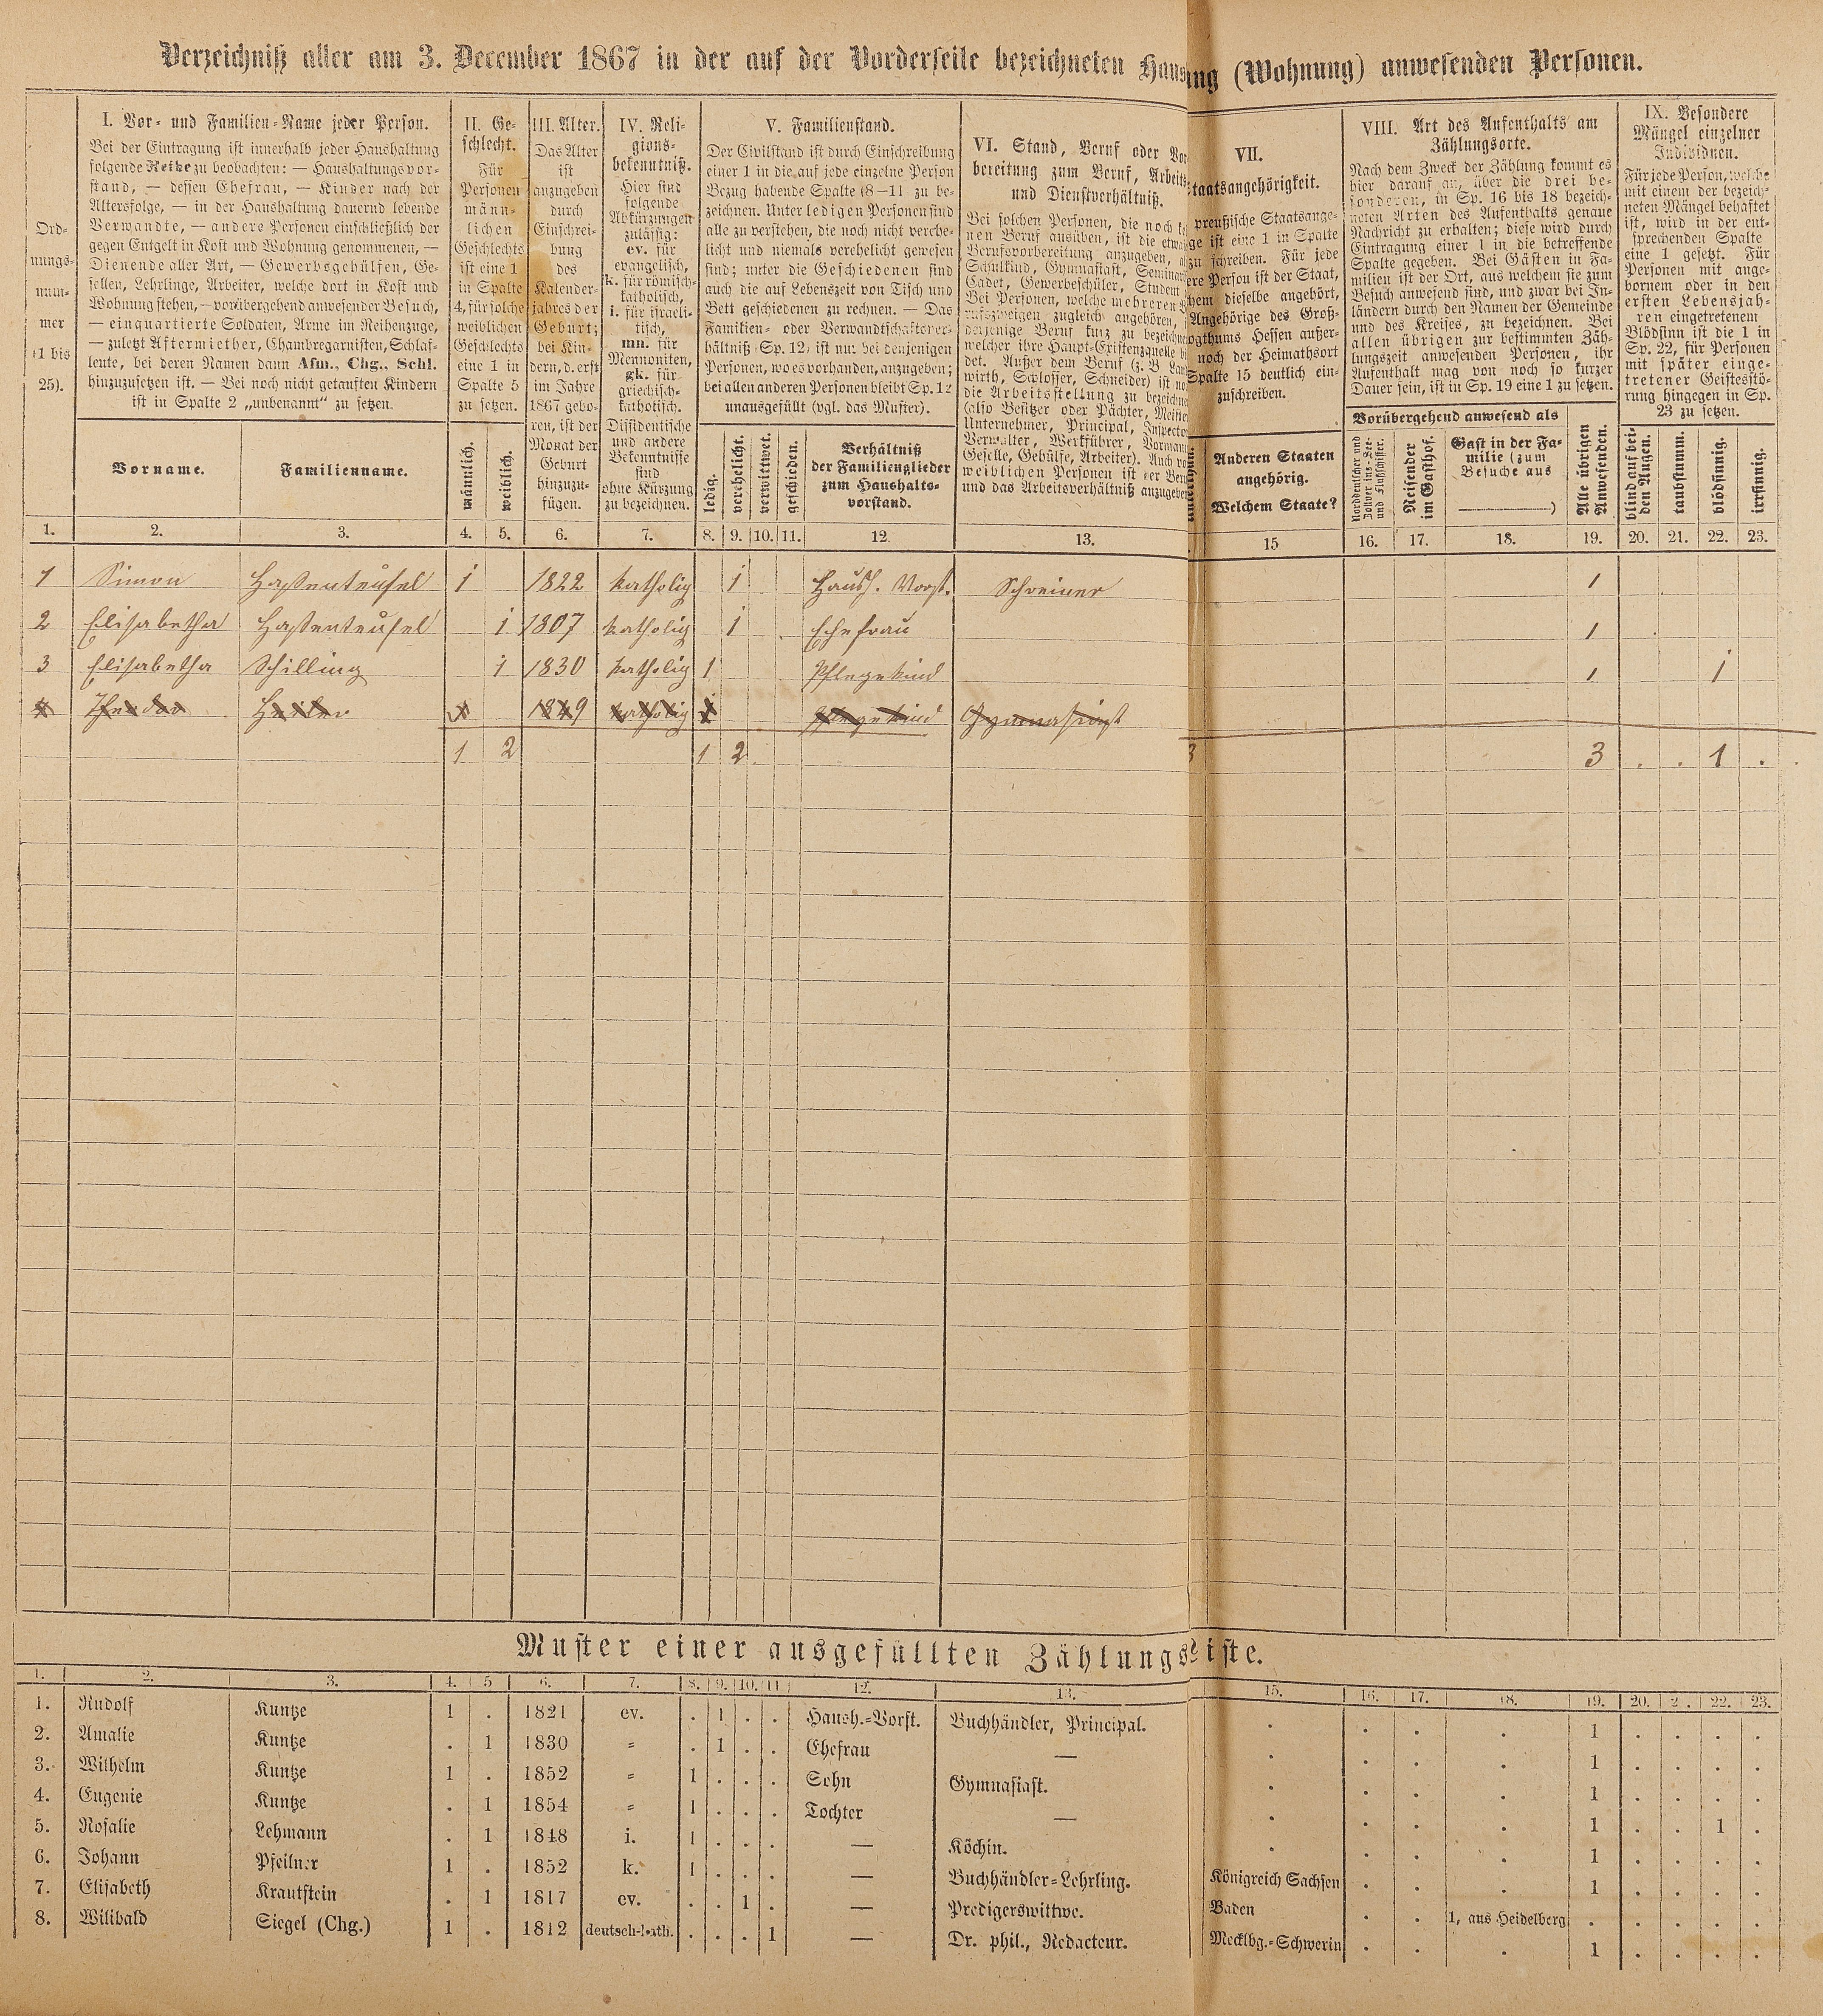 Verzeichniß aller am 3. December 1867 in der auf der Vorderseite bezeichneten Haus ng (Wohnung) anwesenden Personen.
Ord-
nungs-
num-
mer
(1 bis
25).
I. Vor- und Familien-Name jeder Person.
Bei der Eintragung ist innerhalb jeder Haushaltung
folgende Reihe zu beobachten: — Haushaltungsvor-
stand, — dessen Ehefrau, — Kinder nach der
Altersfolge, — in der Haushaltung dauernd lebende
Verwandte, — andere Personen einschließlich der
gegen Entgelt in Kost und Wohnung genommenen, —
Dienende aller Art, — Gewerbsgehülfen, Ge-
sellen, Lehrlinge, Arbeiter, welche dort in Kost und
Wohnung stehen, — vorübergehend anwesender Besuch,
— einquartierte Soldaten, Arme im Reihenzuge,
— zuletzt Aftermiether, Chambregarnisten, Schlaf-
leute, bei deren Namen dann Afm., Chg., Schl.
hinzuzusetzen ist. — Bei noch nicht getauften Kindern
ist in Spalte 2 „unbenannt“ zu setzen.
Vorname. Familienname.
II. Ge-
schlecht.
Für
Personen
männ-
lichen
Geschlechts
ist eine 1
in Spalte
4, für solche
weiblichen
Geschlechts
eine 1 in
Spalte 5
zu setzen.
männlich. weiblich.
III. Alter.
Das Alter
ist
anzugeben
durch
Einschrei-
bung
des
Kalender-
jahres der
Geburt;
bei Kin-
dern, d. erst
im Jahre
1867 gebo-
ren, ist der
Monat der
Geburt
hinzuzu-
fügen.
IV. Reli-
gions-
bekenntniß.
Hier sind
folgende
Abkürzungen
zulässig:
ev. für
evangelisch,
k. für römisch-
katholisch,
i. für israeli-
tisch,
mn. für
Mennoniten,
gk. für
griechisch-
katholisch.
Dissidentische
und andere
Bekenntnisse
sind
ohne Kürzung
zu bezeichnen.
V. Familienstand.
Der Civilstand ist durch Einschreibung
einer 1 in die auf jede einzelne Person
Bezug habende Spalte (8—11 zu be-
zeichnen. Unter ledigen Personen sind
alle zu verstehen, die noch nicht verehe-
licht und niemals verehelicht gewesen
sind; unter die Geschiedenen sind
auch die auf Lebenszeit von Tisch und
Bett geschiedenen zu rechnen. — Das
Familien- oder Verwandtschaftsver-
hältniß (Sp. 12) ist nur bei denjenigen
Personen, wo es vorhanden, anzugeben;
bei allen anderen Personen bleibt Sp. 12
unausgefüllt (vgl. das Muster).
ledig. verehelicht. verwittwet. geschieden.
Verhältniß
der Familienglieder
zum Haushalts-
vorstand.
VI. Stand, Beruf oder Vor
bereitung zum Beruf, Arbeits
und Dienstverhältniß.
Bei solchen Personen, die noch ke
nen Beruf ausüben, ist die etwa
Berufsvorbereitung anzugeben, al
Schulkind, Gymnasiast, Seminari
Cadet, Gewerbeschüler, Student
Bei Personen, welche mehreren
rufszweigen zugleich angehören,
derjenige Beruf kurz zu bezeichne
welcher ihre Haupt-Existenzquelle bi
det. Außer dem Beruf (z. B. Land
wirth, Schlosser, Schneider) ist no
die Arbeitsstellung zu bezeichne
(also Besitzer oder Pächter, Meister
Unternehmer, Principal, Inspecto
Verwalter, Werkführer, Vormann
Geselle, Gehülfe, Arbeiter). Auch vo
weiblichen Personen ist der Beru
und das Arbeitsverhältniß anzugeben
VII.
taatsangehörigkeit.
preußische Staatsange-
ge ist eine 1 in Spalte
zu schreiben. Für jede
ere Person ist der Staat,
hem dieselbe angehört,
Angehörige des Groß-
ogthums Hessen außer-
noch der Heimathsort
Spalte 15 deutlich ein-
zuschreiben.
Anderen Staaten
angehörig.
Welchem Staate?
VIII. Art des Aufenthalts am
Zählungsorte.
Nach dem Zweck der Zählung kommt es
hier darauf an, über die drei be-
sonderen, in Sp. 16 bis 18 bezeich-
neten Arten des Aufenthalts genaue
Nachricht zu erhalten; diese wird durch
Eintragung einer 1 in die betreffende
Spalte gegeben. Bei Gästen in Fa-
milien ist der Ort, aus welchem sie zum
Besuch anwesend sind, und zwar bei In-
ländern durch den Namen der Gemeinde
und des Kreises, zu bezeichnen. Bei
allen übrigen zur bestimmten Zäh-
lungszeit anwesenden Personen, ihr
Aufenthalt mag von noch so kurzer
Dauer sein, ist in Sp. 19 eine 1 zu setzen.
Vorübergehend anwesend als
Norddeutscher und
Zollver ins-See-
und Flußschiffer.
Reisender
im Gasthof.
Gast in der Fa-
milie (zum
Besuche aus
)
Alle übrigen
Anwesenden.
IX. Besondere
Mängel einzelner
Individuen.
Für jede Person, welche
mit einem der bezeich-
neten Mängel behaftet
ist, wird in der ent-
sprechenden Spalte
eine 1 gesetzt. Für
Personen mit ange-
bornem oder in den
ersten Lebensjah-
ren eingetretenem
Blödsinn ist die 1 in
Sp. 22, für Personen
mit später einge-
tretener Geistesstö-
rung hingegen in Sp.
23 zu setzen.
blind auf bei-
den Augen.
taubstumm. blödsinnig. irrsinnig.
1. 2. 3. 4. 5. 6. 7. 8. 9. 10. 11. 12. 13. 15 16. 17. 18. 19. 20. 21. 22. 23.
1 Simon Haßenteufel 1 1822 katholig 1 Haush. Vorst. Schreiner 1
2 Elisabetha Haßenteufel 1 1807 katholig 1 Ehefrau 1
3 Elisabetha Schilling 1 1830 katholig 1 Pflegekind 1 1
4 Theodor 1849 katholig 1 Pflegekind Gymnasiast
1 2 1 2 3 3 . . 1 .
Muster einer ausgefüllten Zählungsliste.
1. 2. 3. 4. 5 6. 7. 8. 9. 10. 11 12. 13. 15. 16. 17. 18. 19. 20. 2 . 22. 23.
1. Rudolf Kuntze 1 . 1821 ev. . 1 . . Haush.-Vorst. Buchhändler, Principal. . . . . 1 . . . .
2. Amalie Kuntze . 1 1830 = . 1 . . Ehefrau — . . . . 1 . . . .
3. Wilhelm Kuntze 1 . 1852 = 1 . . . Sohn Gymnasiast. . . . . 1 . . . .
4. Eugenie Kuntze . 1 1854 = 1 . . . Tochter — . . . . 1 . . 1 .
5. Rosalie Lehmann . 1 1848 i. 1 . . . — Köchin. . . . . 1 . . . .
6. Johann Pfeilner 1 . 1852 k. 1 . . . — Buchhändler-Lehrling. Königreich Sachsen . . . 1 . . . .
7. Elisabeth Krautstein . 1 1817 ev. . . 1 . — Predigerswittwe. Baden . . 1, aus Heidelberg . . . . .
8. Wilibald Siegel (Chg.) 1 . 1812 deutsch-kath. . . . 1 — Dr. phil., Redacteur. Mecklbg.-Schwerin . . . 1 . . . .